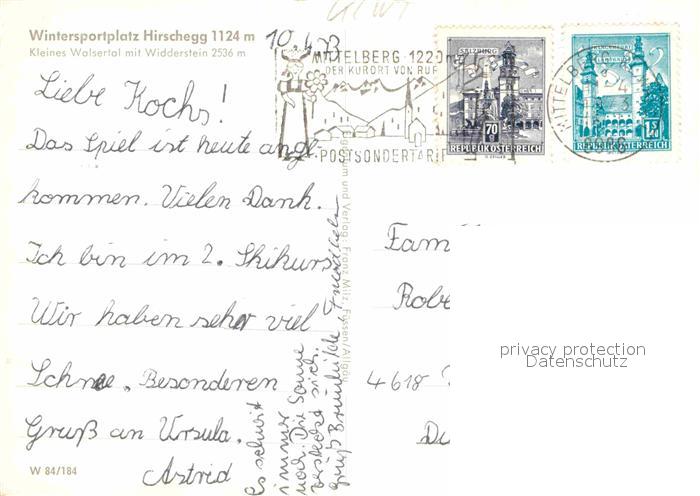 Wintersportplatz Hirschegg 1124 m
Kleines Walsertal mit Widderstein 2536 m
10.4.73
Liebe Kochs!
Das Spiel ist heute ange-
kommen. Vielen Dank.
Ich bin im 2. Skikurs
Wir haben sehr viel
Schnee. Besonderen
Gruß an Ursula.
Astrid
W 84/184
Es schneit
immer
noch. Die Sonne
versteckt sich.
Gruß Brunhilde,
und Verlag: Franz Milz, Füssen/Allgäu
MITTELBERG 1220
DER KURORT VON RUF
POSTSONDERTARIF
SALZBURG
70
REPUBLIK ÖSTERREICH
MITTELBERG
REPUBLIK ÖSTERREICH
Fam
Robe
4618
Du
privacy protection
Datenschutz